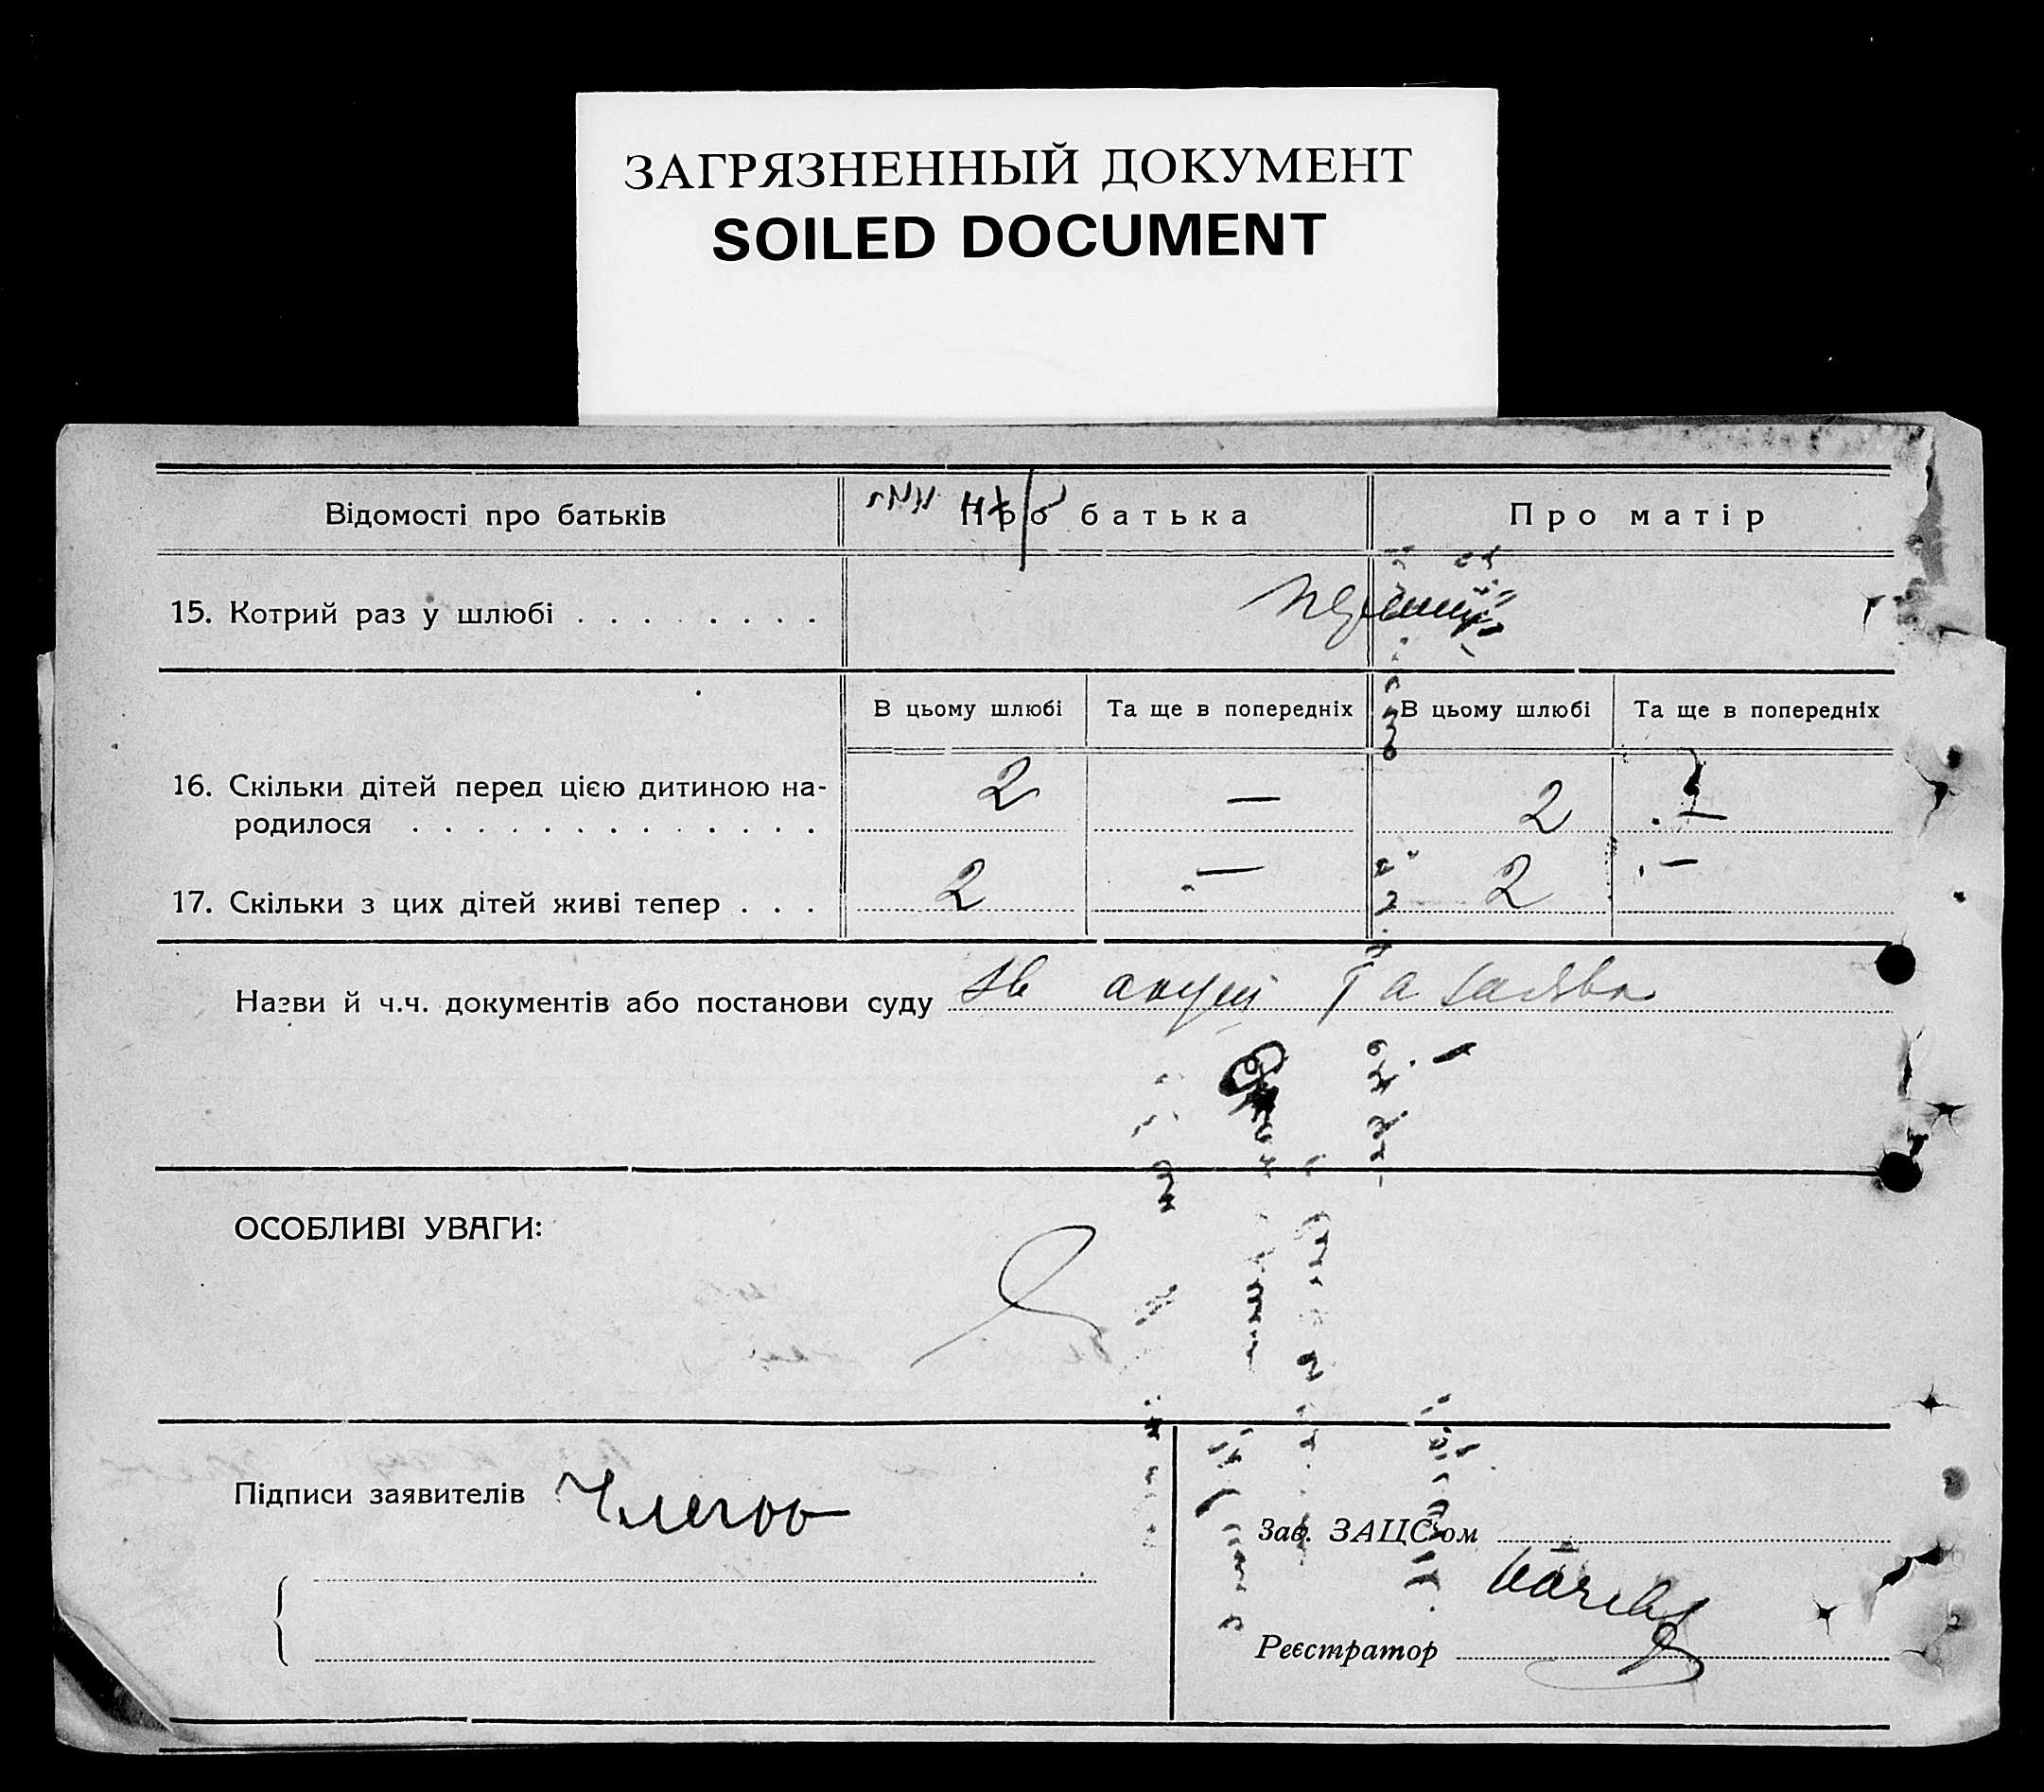 ЗАГРЯЗНЕННЫЙ ДОКУМЕНТ
SOILED DOCUMENT
Відомості про батьків Про батька Про матір
15. Котрий раз у шлюбі . . . . . . . . перший
В цьому шлюбі Та ще в попередніх В цьому шлюбі Та ще в попередніх
16. Скільки дітей перед цією дитиною на-
родилося . . . . . . . . . . . . . 2 — 2 —
17. Скільки з цих дітей живі тепер . . . 2 — 2 —
Назви й ч.ч. документів або постанови суду та заява
ОСОБЛИВІ УВАГИ:
Підписи заявителів
Зав. ЗАЦС'ом
Реєстратор